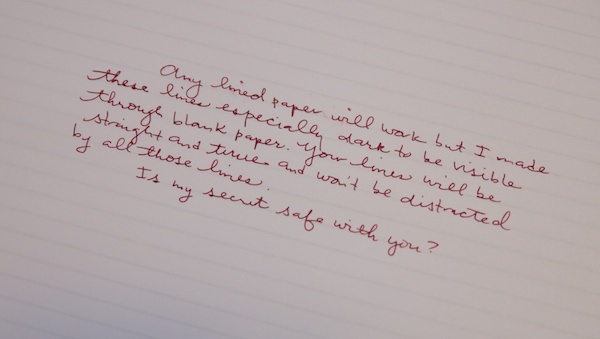 Any lined paper will work but I made
these lines especially dark to be visible
through blank paper. Your lines will be
straight and true and won't be distracted
by all those lines.
Is my secret safe with you?